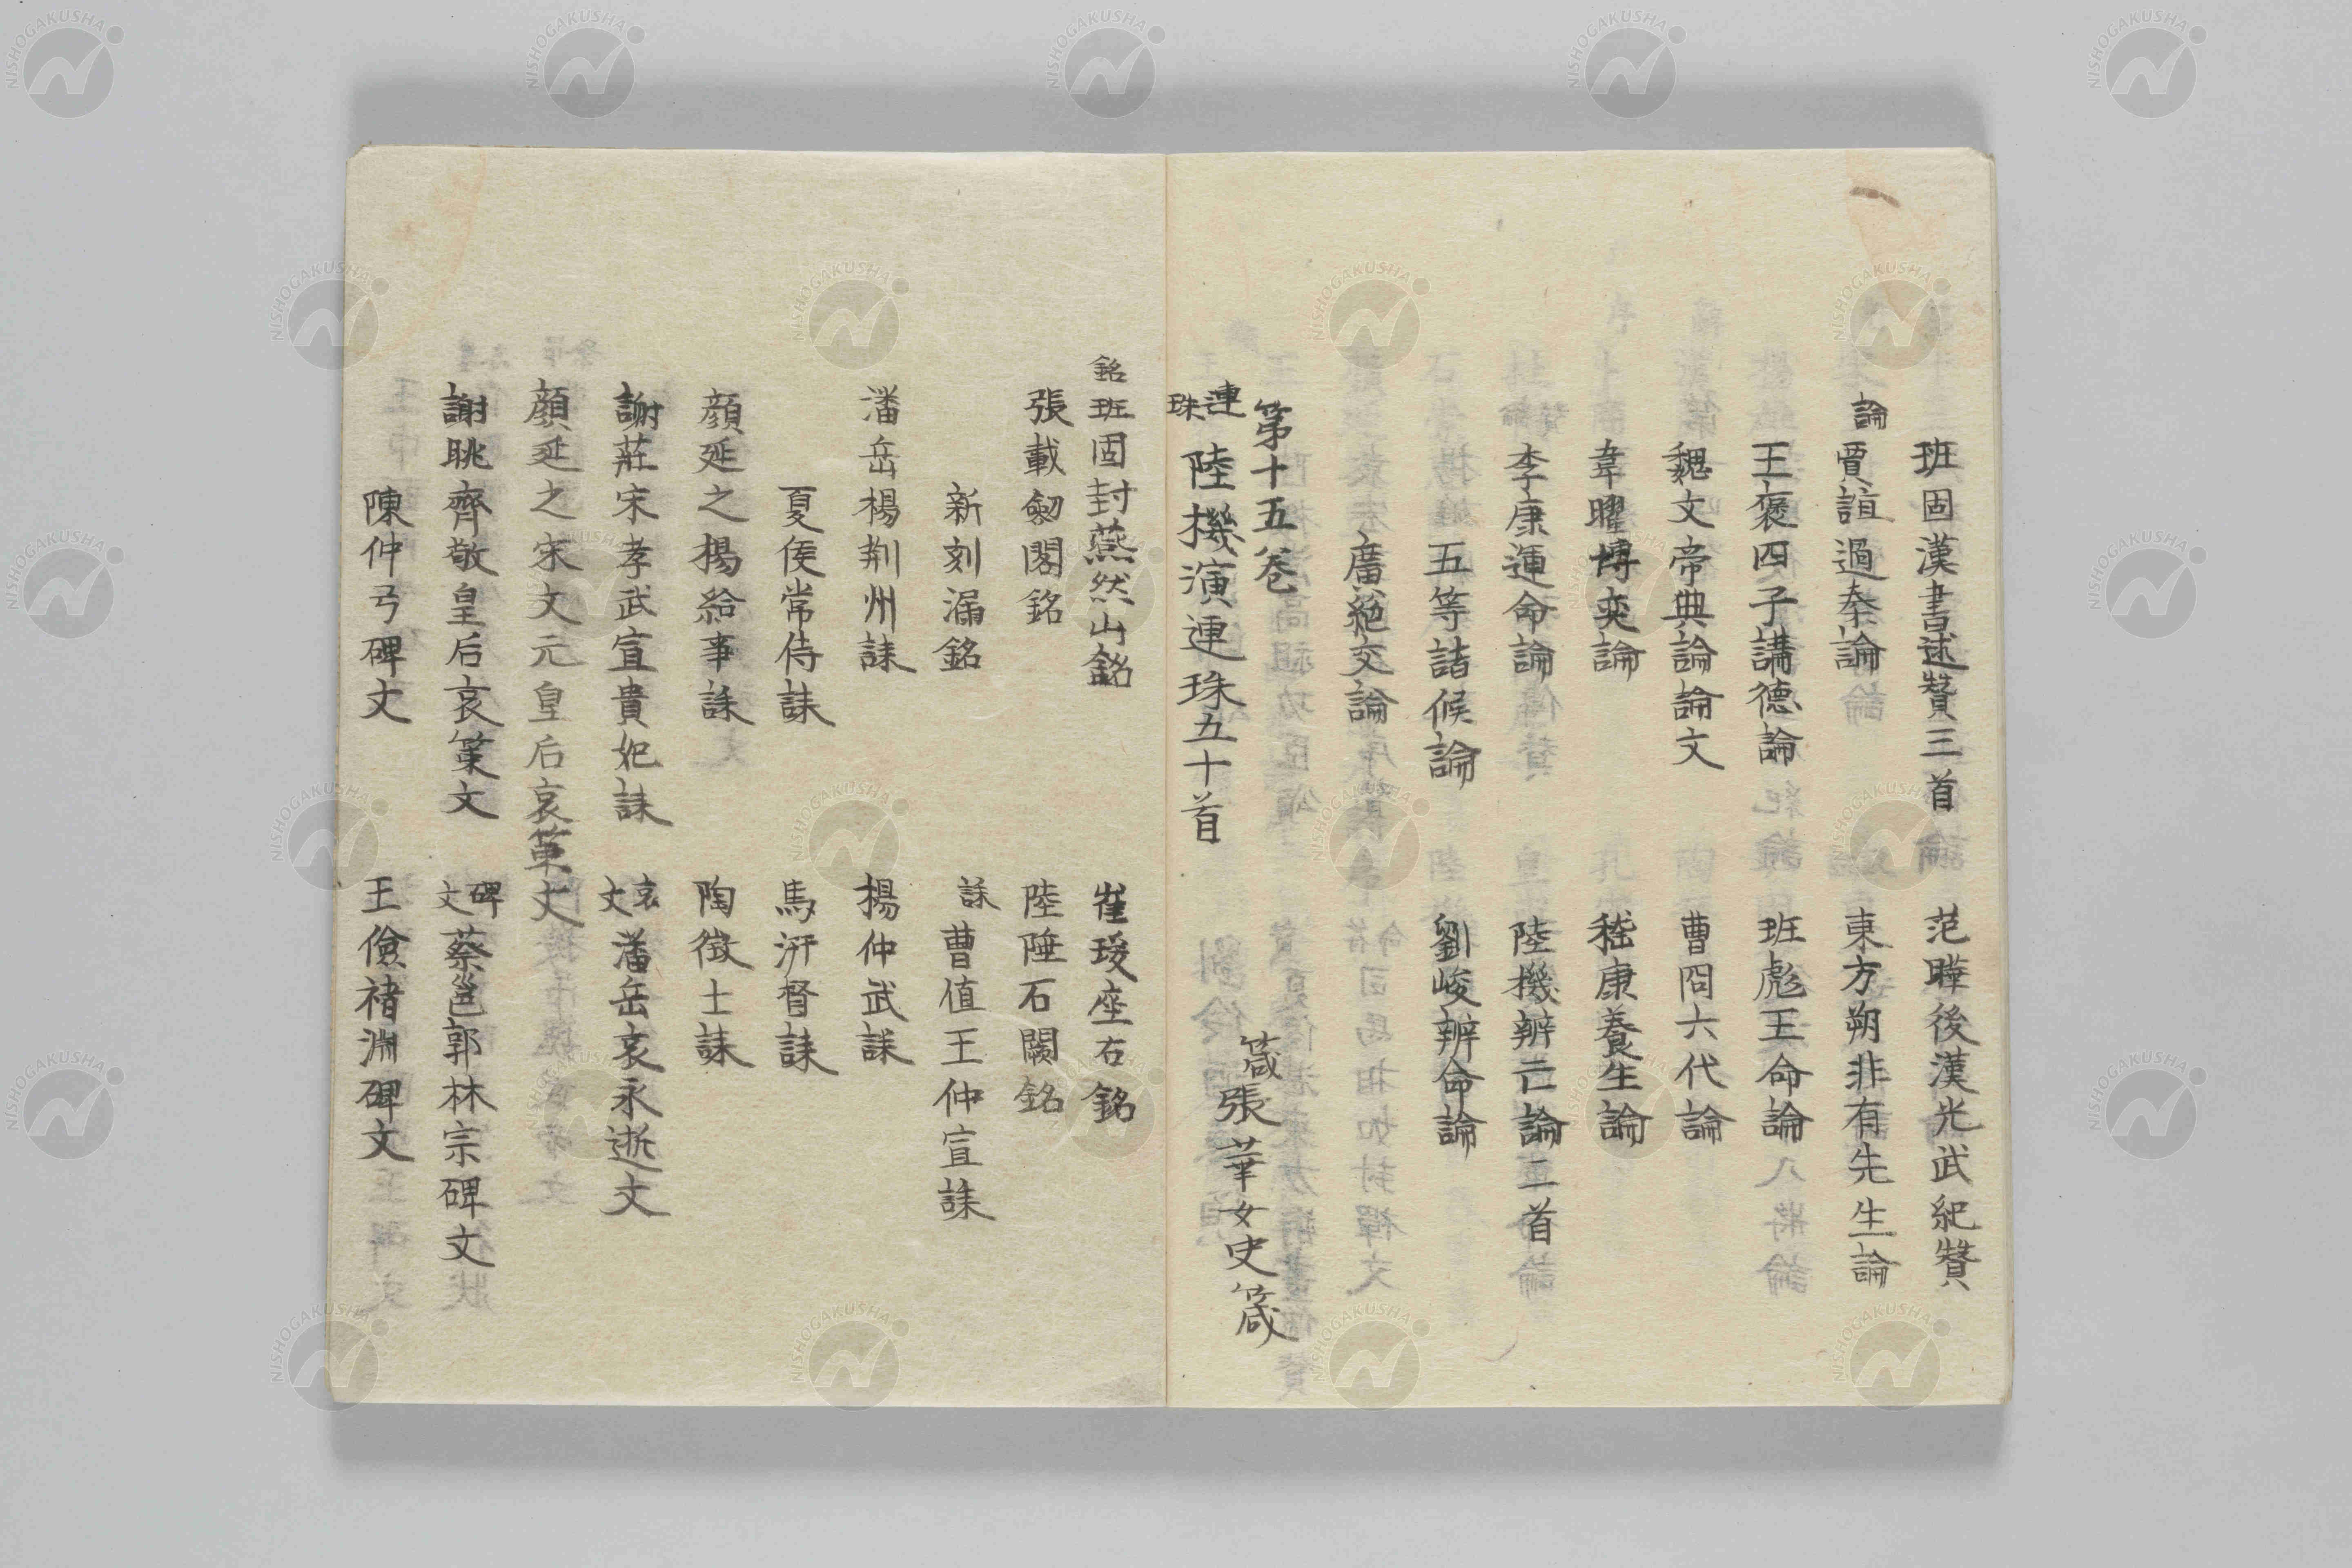 班固漢書述賛三首　范曄後漢光武紀賛
論　賈誼過秦論　東方朔非有先生論
王褒四子講德論　班彪王命論
魏文帝典論論文　曹冏六代論
韋曜博奕論　嵇康養生論
李康運命論　陸機辨亡論二首
五等諸候論　劉峻辨命論
廣絶交論
第十五卷
連珠　陸機演連珠五十首　箴　張華女史箴
銘　班固封燕然山銘　崔瑗座右銘
張載劒閣銘　陸陲石闕銘
新刻漏銘　誄　曹值王仲宣誄
潘岳楊荆州誄　楊仲武誄
夏侯常侍誄　馬汧督誄
顔延之楊給事誄　陶徴士誄
謝莊宋孝武宣貴妃誄　哀文　潘岳哀永逝文
顔延之宋文元皇后哀䇿文
謝眺齊敬皇后哀䇿文　碑文　蔡邕郭林宗碑文
陳仲弓碑文　王儉褚淵碑文
NISHOGAKUSHA